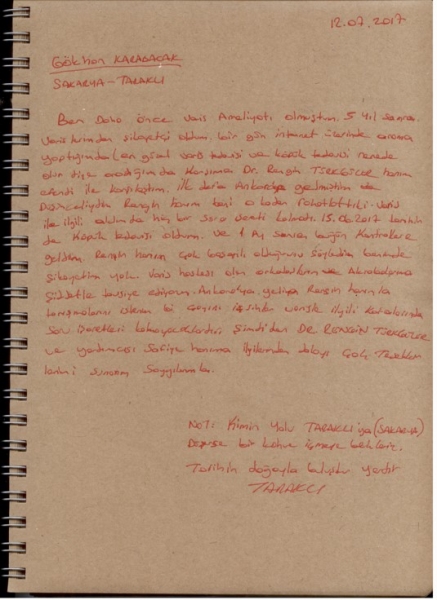 12.07.2017
Gökhan KARABACAK
SAKARYA-TARAKLI
Ben Daha önce varis Ameliyatı olmuştum. 5 yıl sonra
varislerimden şikayetçi oldum. bir gün internet üzerinde arama
yaptığımda en güzel varis tedavisi ve köpük tedavisi nerede
olur diye aradığımda karşıma Dr. Rengin TÜRKGÜLER hanım
efendi ile karşılaştım. İlk derin Ankaraya gelmiştim de
Rengin hanım beni o kadar rahatlattıki varis
ile ilgili aklımda hiç bir soru işareti kalmadı. 15.06.2017 tarihin
de Köpük tedavisi oldum. ve 1 Ay sonra bugün Kontrolere
geldim. Rengin hanım çok başarılı olduğunu söyledi benimde
şikayetim yok. varis hastası olan arkadaşlarıma ve Akrabalarıma
şiddetle tavsiye ediyorum. Ankaraya gelip Rengin hanımla
tanışmalarını isterim bi çayını içsinler varisle ilgili kafalarında
soru
ve yardımcısı Safiye hanıma ilgilerinden dolayı Çok Teşekkür
lerimi sunarım Saygılarımla.
NOT: Kimin Yolu TARAKLI'ya (SAKARYA)
Düşerse bir kahve içmeye bekleriz.
Tarihin doğayla buluştu yerdir
TARAKLI